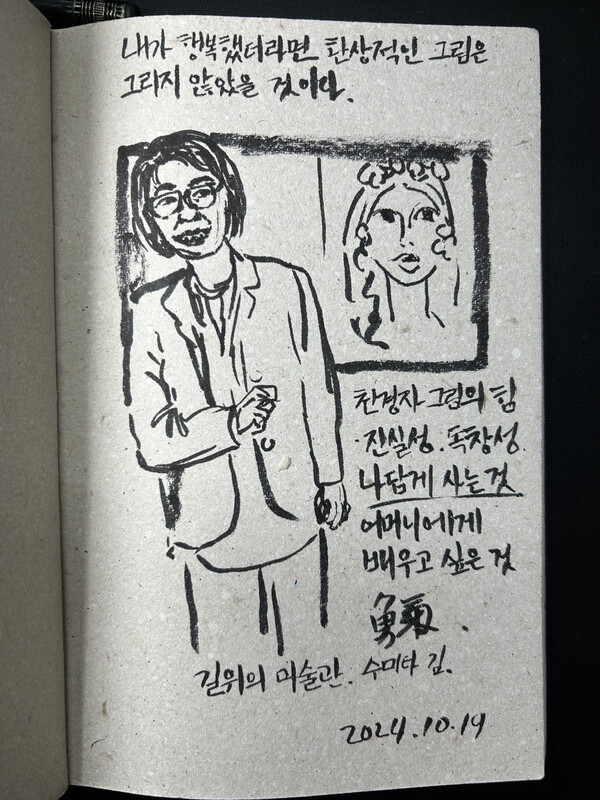 내가 행복했더라면 환상적인 그림은
그리지 않았을 것이다.
천경자 그림의 힘
·진실성. 독창성.
나답게 사는 것
어머니에게
배우고 싶은 것
勇氣.
길위의 미술관. 수미타 김.
2024.10.19